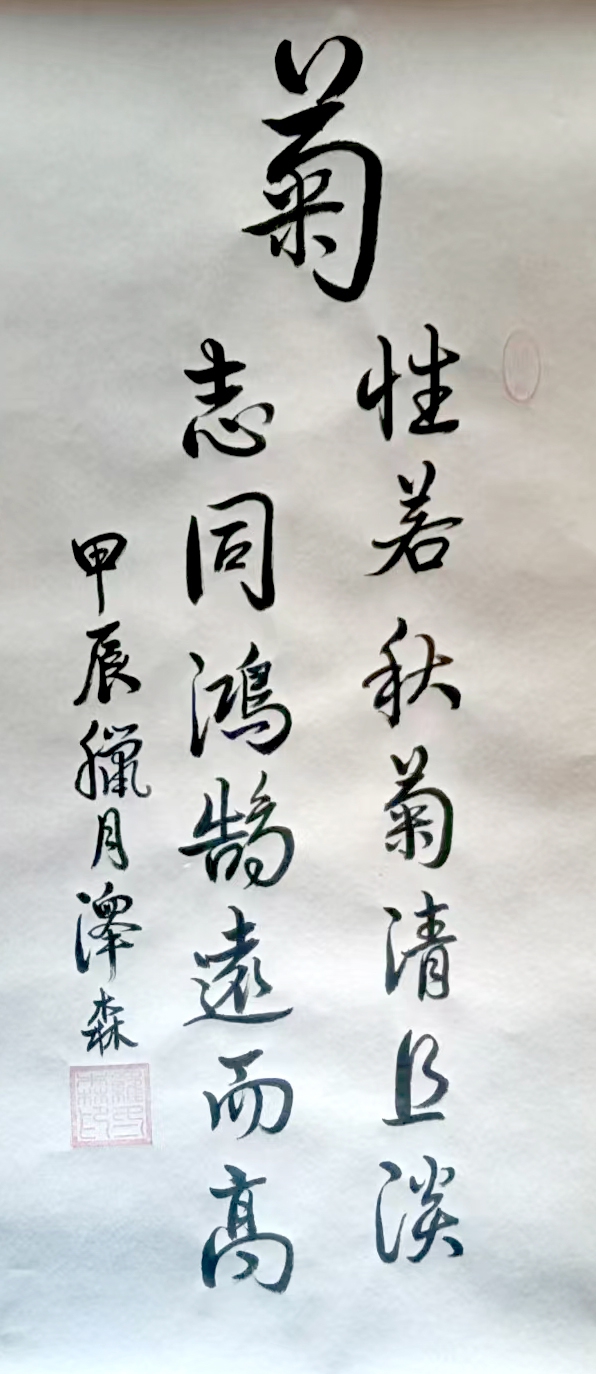 菊
性若秋菊清且淡
志同鴻鵠遠而高
甲辰臘月澤森